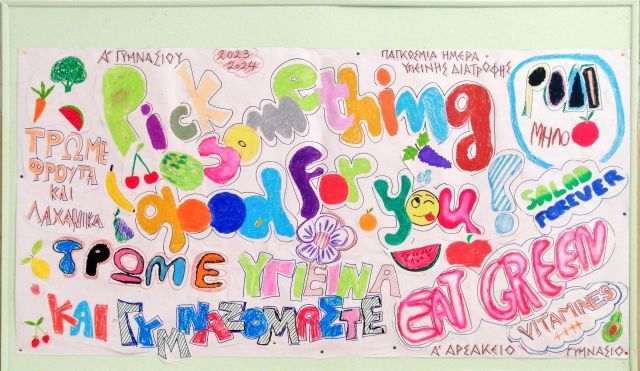 Α' ΓΥΜΝΑΣΙΟΥ
2023
2024
ΠΑΓΚΟΣΜΙΑ ΗΜΕΡΑ
ΥΓΙΕΙΝΗΣ ΔΙΑΤΡΟΦΗΣ
Pick something
good for you!
ΤΡΩΜΕ
ΦΡΟΥΤΑ
ΚΑΙ
ΛΑΧΑΝΙΚΑ
ΡΟΔΙ
ΜΗΛΟ
SALAD
FOREVER
ΤΡΩΜΕ ΥΓΙΕΙΝΑ
ΚΑΙ ΓΥΜΝΑΖΟΜΑΣΤΕ
EAT GREEN
VITAMINES
Α' ΑΡΣΑΚΕΙΟ ΓΥΜΝΑΣΙΟ